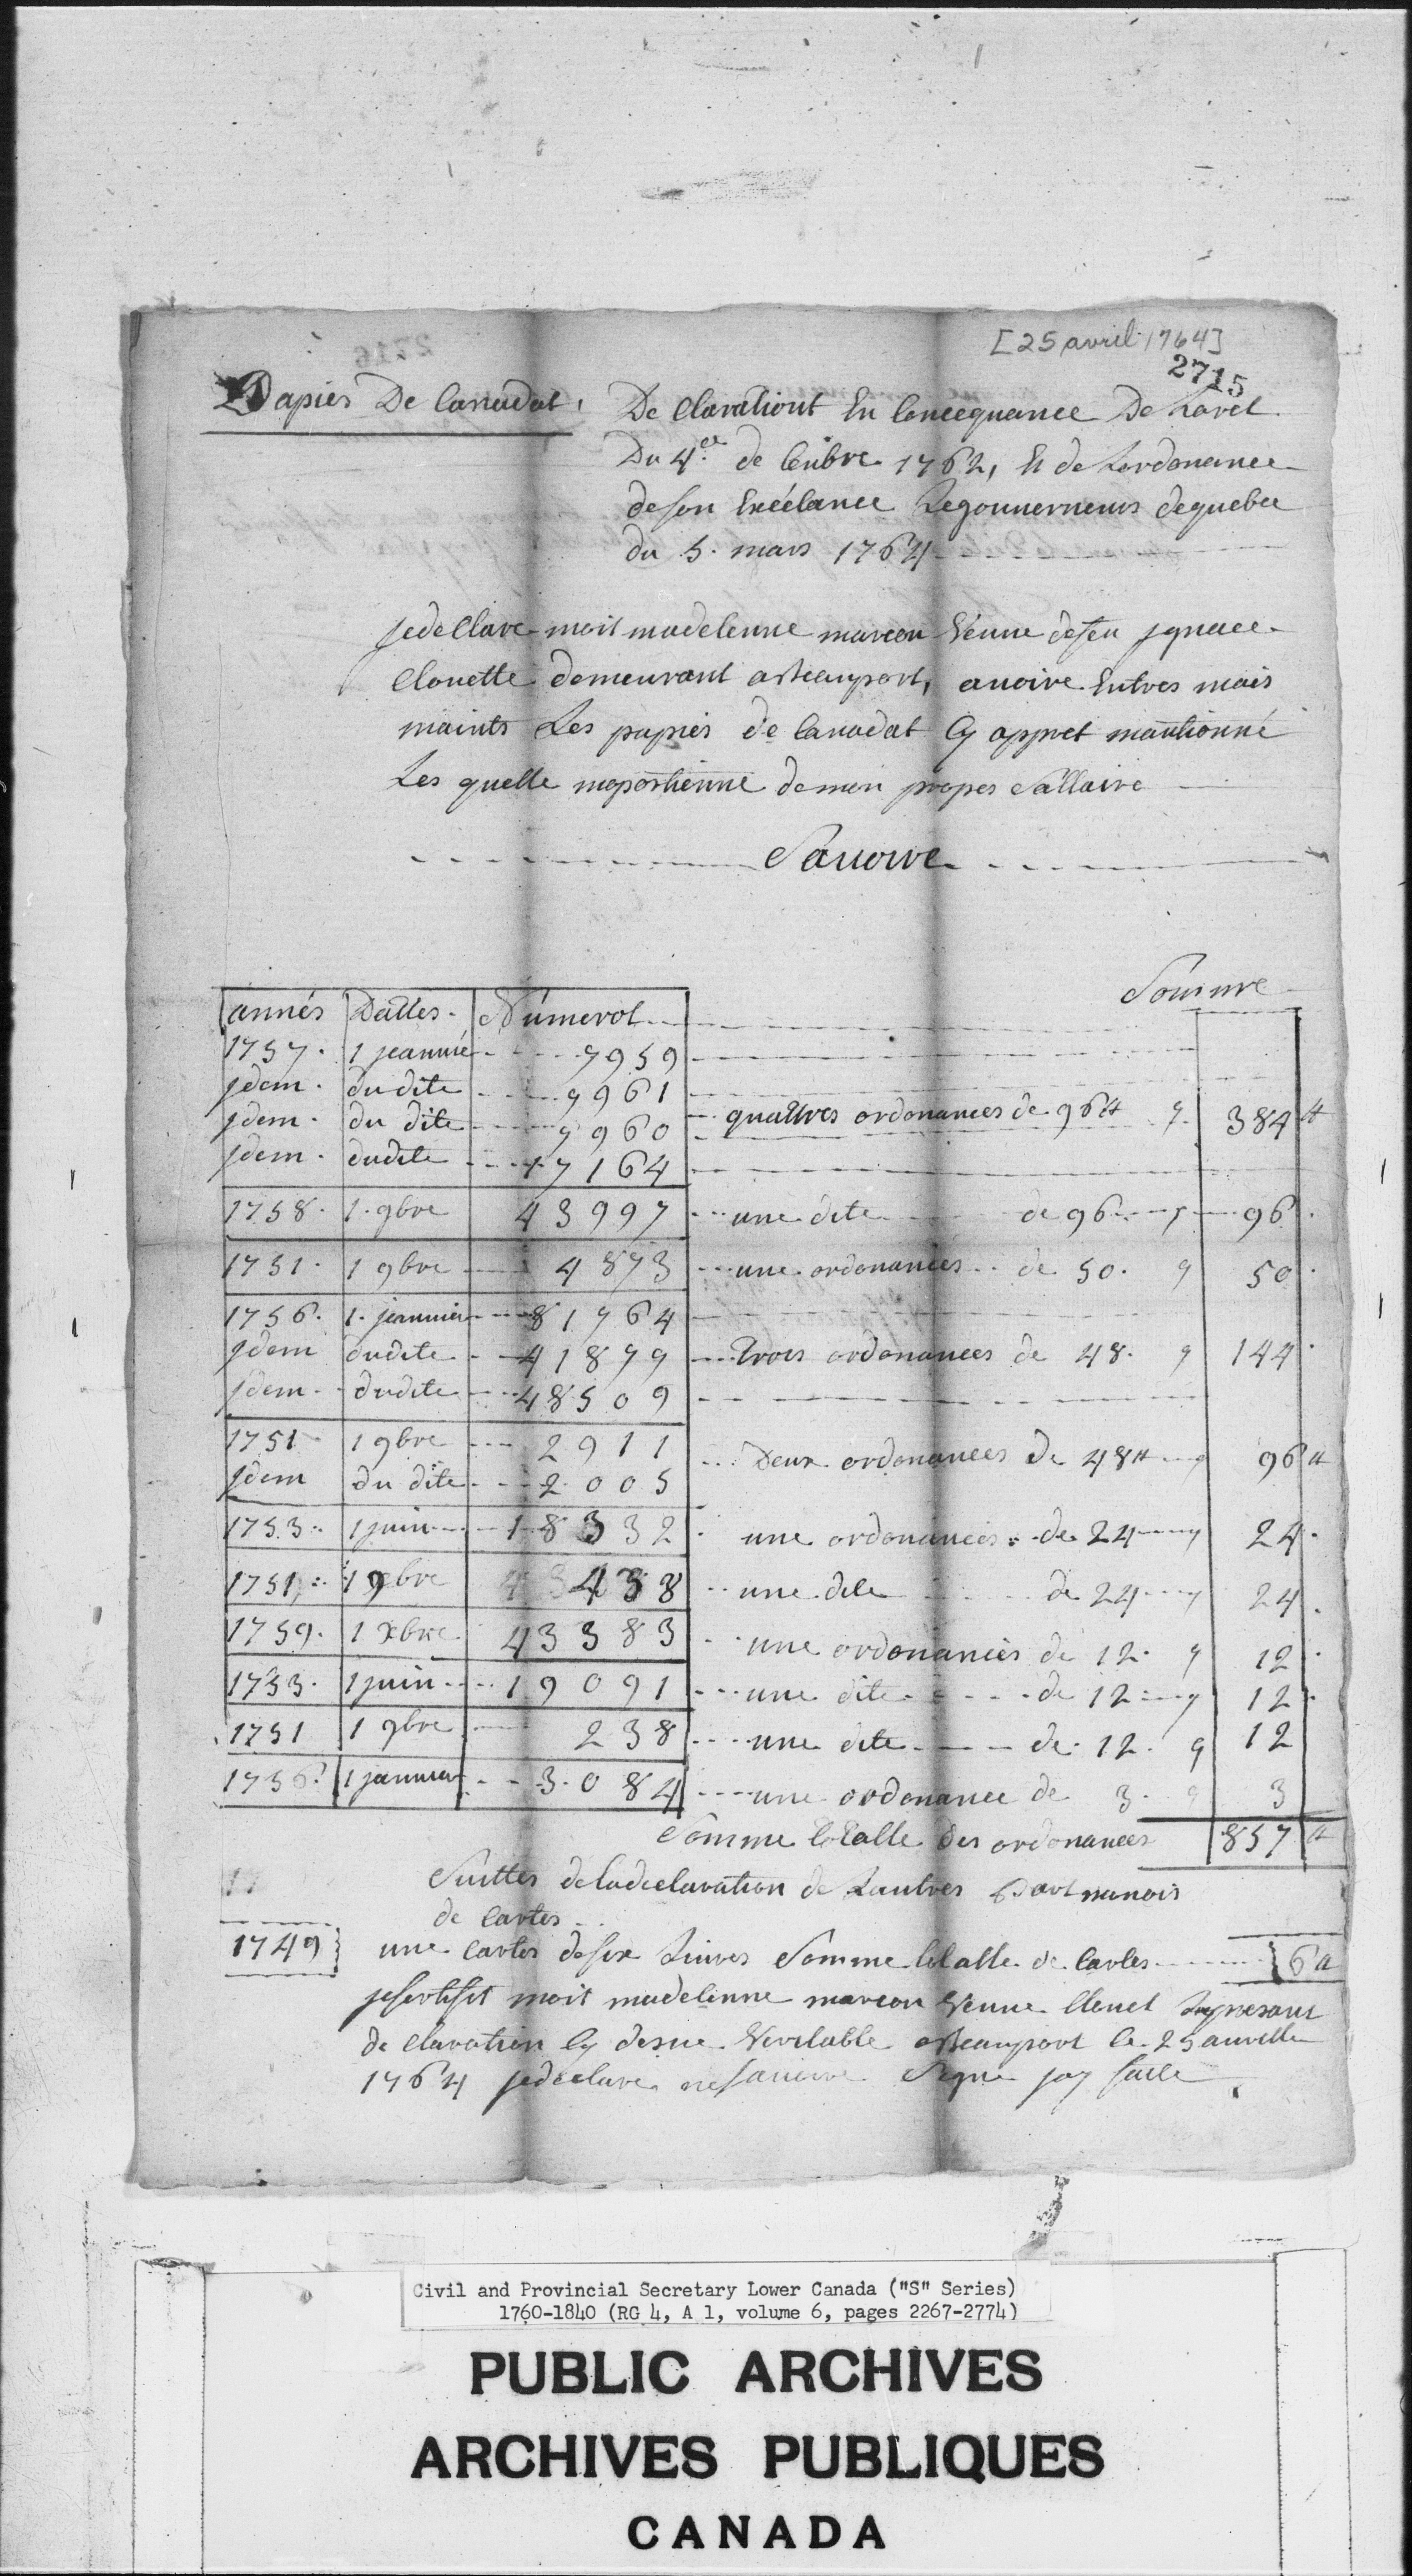 [25 avril 1764]
2715
Papiés De Canadat,
De Clarationt En Concequance De Laret
Du 4.e de 1762, Et de Lordonance
de son Excélance Legouuerneurs dequebec
du 5. mars 1764
Je de Clare moit madelenne marcou Veuue defeu jgnace
Clouette demeurant a Beauport, auoire Entres mais
maints Les papiés de Canadat Cy appret mantionné
Les quelle mapartienne demen propes Sallaire
Sauoire
Somme
annés Dattes Numerot
1757. 1 jeanuié 7959
jdem. du dite 9961
jdem. du dite 7960 quattres ordonances de 96tt 384tt
jdem. dudite 17164
1758. 1. 9bre 43997 une dite de 96 96.
1751. 1 9bre 4873 une ordonances de 50. 50.
1756. 1. jeanuier 81764
jdem dudite 41879 trois ordonances de 48. 144.
jdem. dudite 48509
1751 1 9bre 2911
jdem du dite 2005 Deux ordonances De 48tt 96tt
1753. 1 juin 18332 une ordonances de 24 24.
1751. 1 9bre 438 une dite de 24 24.
1759. 1 Xbre 43383 une ordonances de 12. 12.
1753. 1 juin 19091 une dite de 12 12.
1751 1 9bre 238 une dite de 12. 12
1756. 1 januier 3084 une ordonance de 3. 3
Somme totalle Des ordonances 857tt
Suittes deladeclaration de Lautres Part
de Cartes
1749 une Cartes desix Liures Somme totalle de Cartes 6tt
jesertifit moit madelinne marcou Veuue Cleuet Lapresant
de Claration Cy desue Veritable a Beauport le 25 auville
1764 jedeclare nesauoire Signe
Civil and Provincial Secretary Lower Canada ("S" Series)
1760-1840 (RG 4, A 1, volume 6, pages 2267-2774)
PUBLIC ARCHIVES
ARCHIVES PUBLIQUES
CANADA